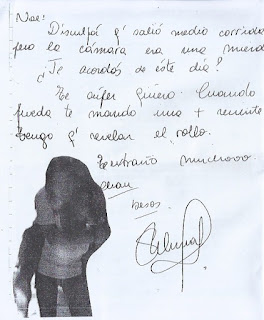 Nae:
Disculpá q' salió medio corrida
pero la cámara era una mierd
¿Te acordás de este día?
Te súper quiero. Cuando
pueda te mando una + reciente
tengo q' revelar el rollo.
Te extraño muchooo
besos